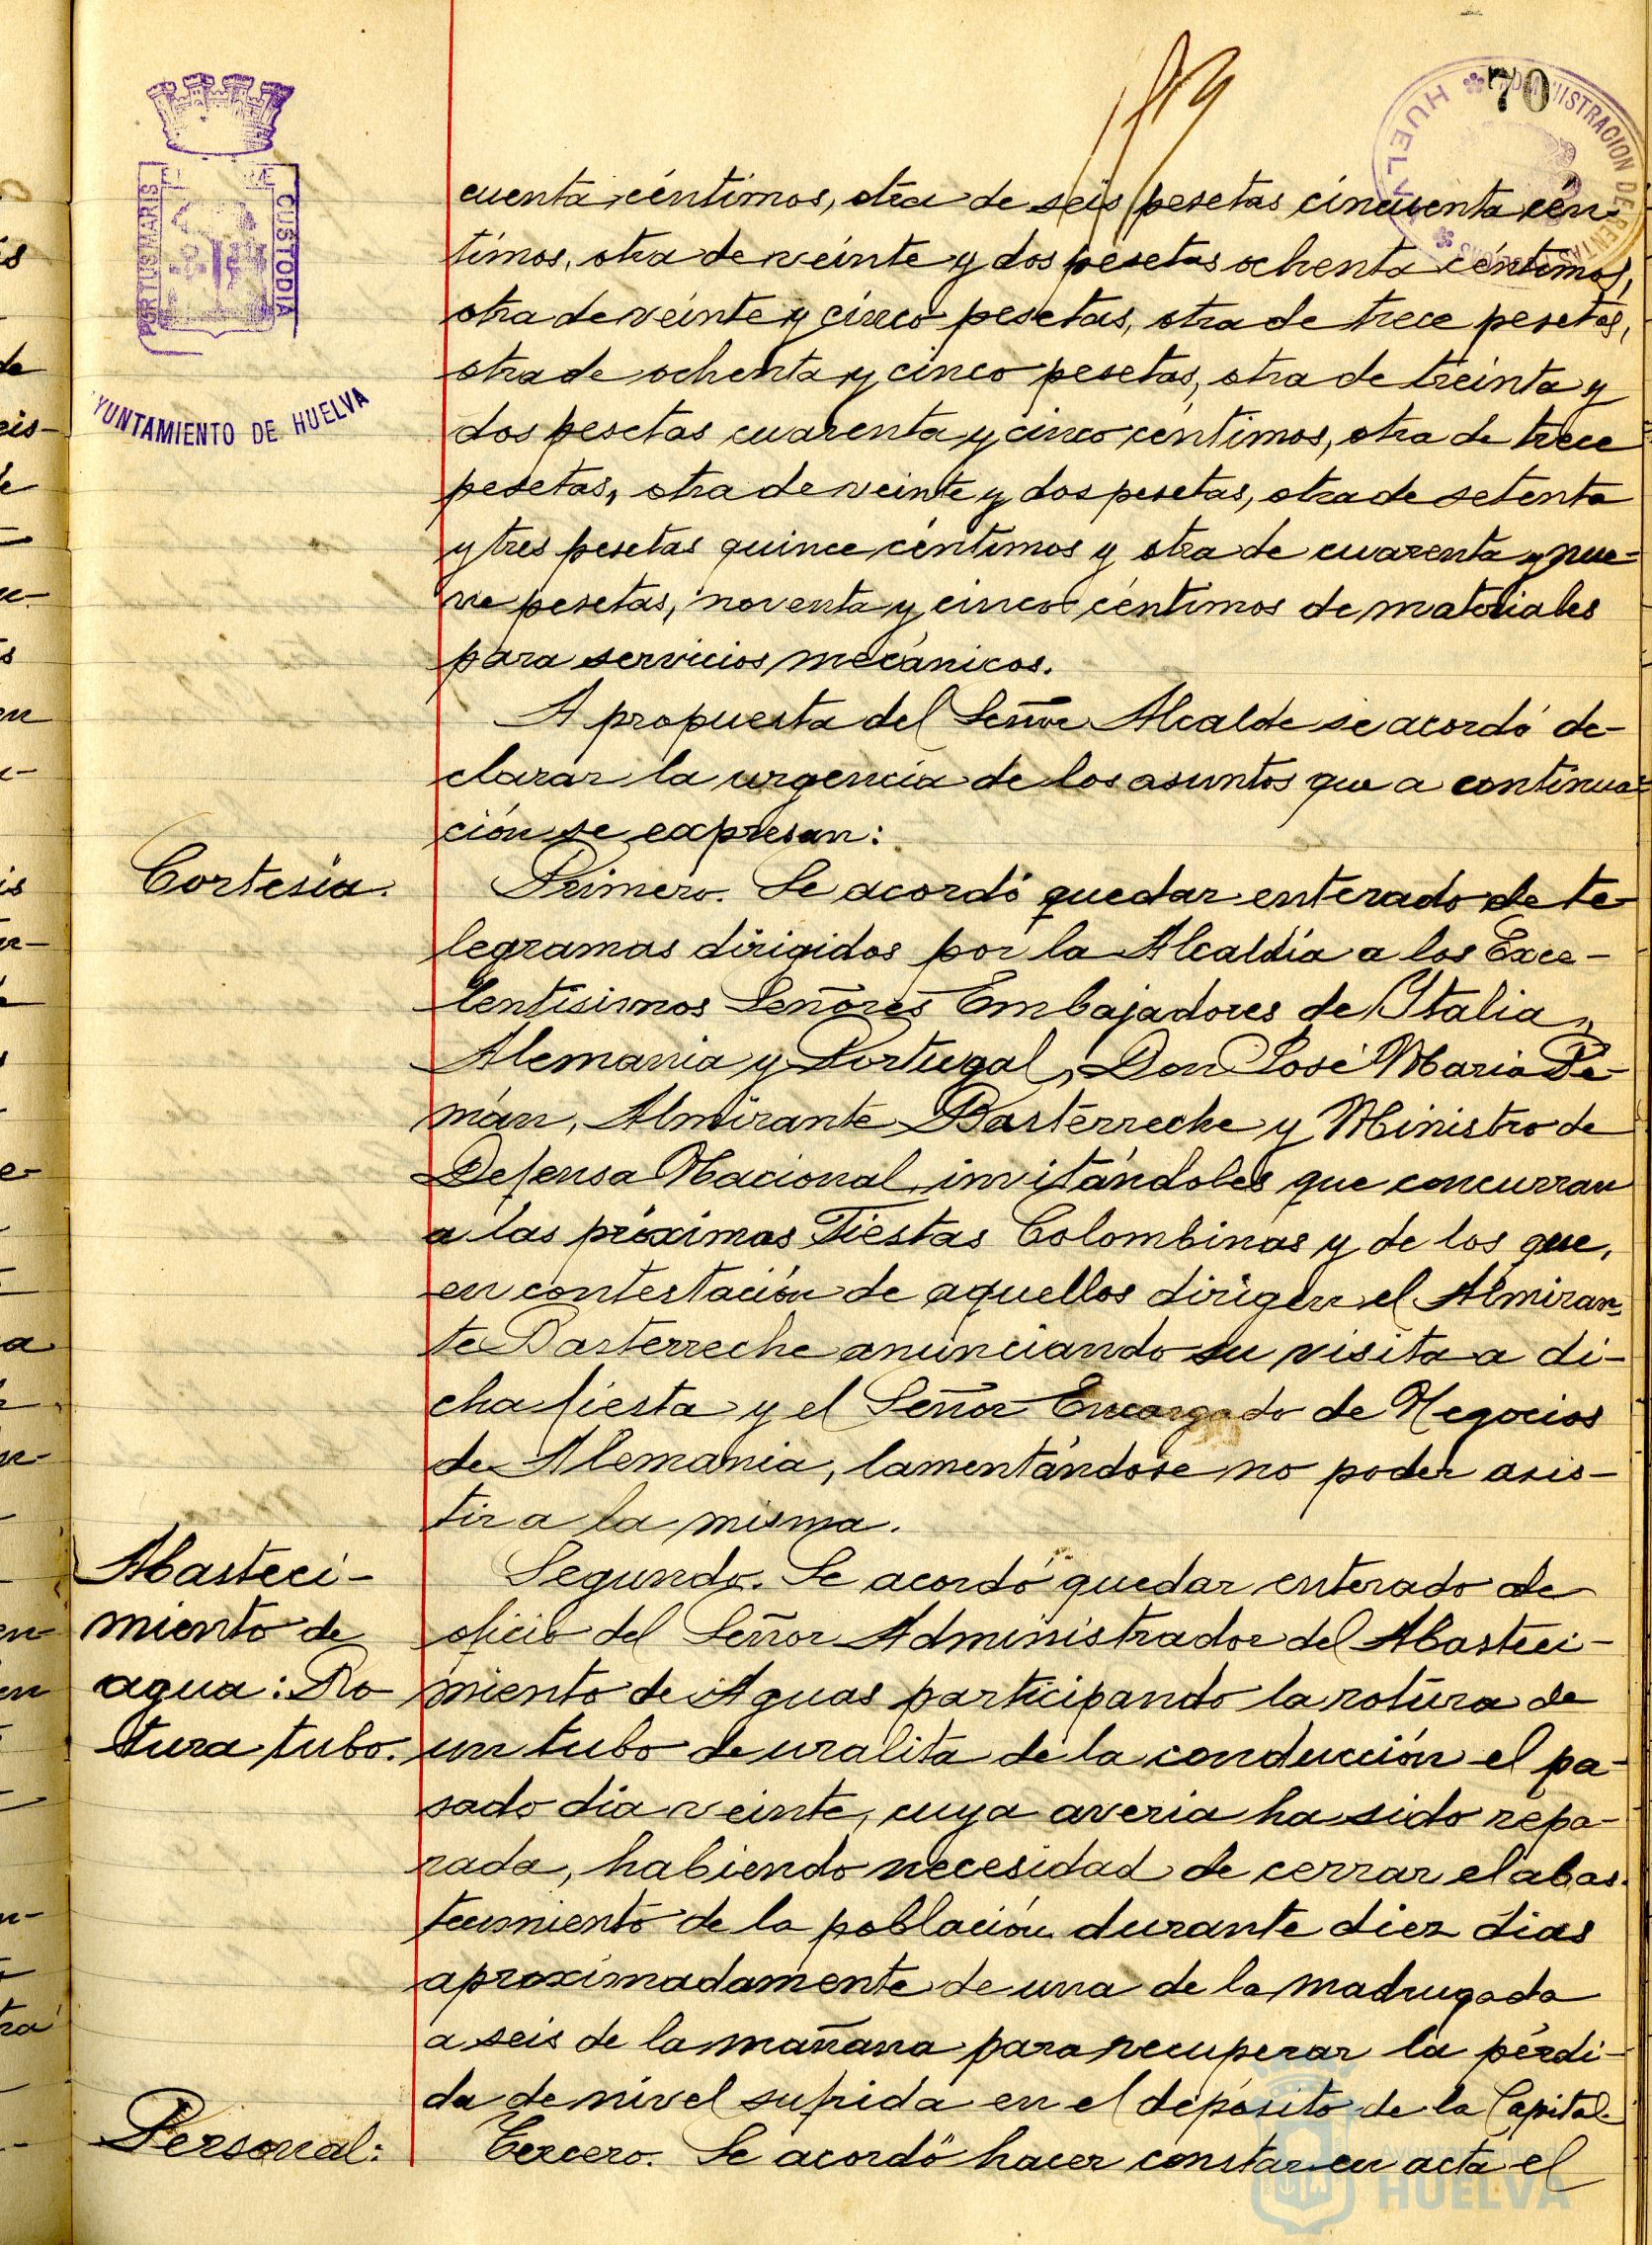 70
PORTUS MARIS
CUSTODIA
AYUNTAMIENTO DE HUELVA
ADMINISTRACION DE RENTAS
HUELVA
cuenta céntimos, otra de seis pesetas cincuenta cén-
timos, otra de veinte y dos pesetas ochenta céntimos,
otra de veinte y cinco pesetas, otra de trece pesetas,
otra de ochenta y cinco pesetas, otra de treinta y
dos pesetas cuarenta y cinco céntimos, otra de trece
pesetas, otra de veinte y dos pesetas, otra de setenta
y tres pesetas quince céntimos y otra de cuarenta y nue-
ve pesetas, noventa y cinco céntimos de materiales
para servicios mecánicos.
A propuesta del Señor Alcalde se acordó de-
clarar la urgencia de los asuntos que a continua-
ción se expresan:
Cortesia.
Primero. Se acordó quedar enterado de te-
legramas dirigidos por la Alcaldía a los Exce-
lentísimos Señores Embajadores de Italia,
Alemania y Portugal, Don José Maria Pe-
mán, Almirante Bastérreche y Ministro de
Defensa Nacional, invitándoles que concurran
a las próximas Fiestas Colombinas y de los que,
en contestación de aquellos dirigen el Almiran-
te Basterreche anunciando su visita a di-
cha fiesta y el Señor Encargado de Negocios
de Alemania, lamentándose no poder asis-
tir a la misma.
Abasteci-
miento de
agua: Ro-
tura tubo.
Segundo. Se acordó quedar enterado de
oficio del Señor Administrador del Abasteci-
miento de Aguas participando la rotura de
un tubo de uralita de la conducción el pa-
sado dia veinte, cuya averia ha sido repa-
rada, habiendo necesidad de cerrar el abas-
tecimiento de la población durante diez dias
aproximadamente de una de la madrugada
a seis de la mañana para recuperar la pérdi-
da de nivel sufrida en el depósito de la Capital.
Personal:
Tercero. Se acordó hacer constar en acta el
Ayuntamiento de
HUELVA